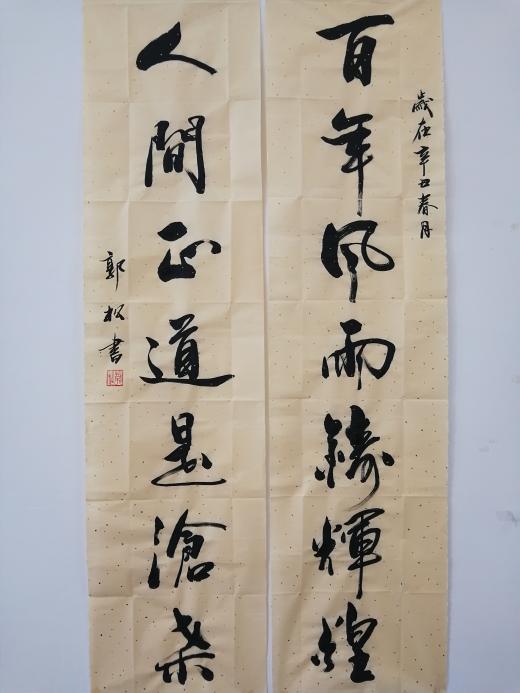 歲在辛丑春月
百年风雨鑄輝煌
人間正道是滄桑
郭松書